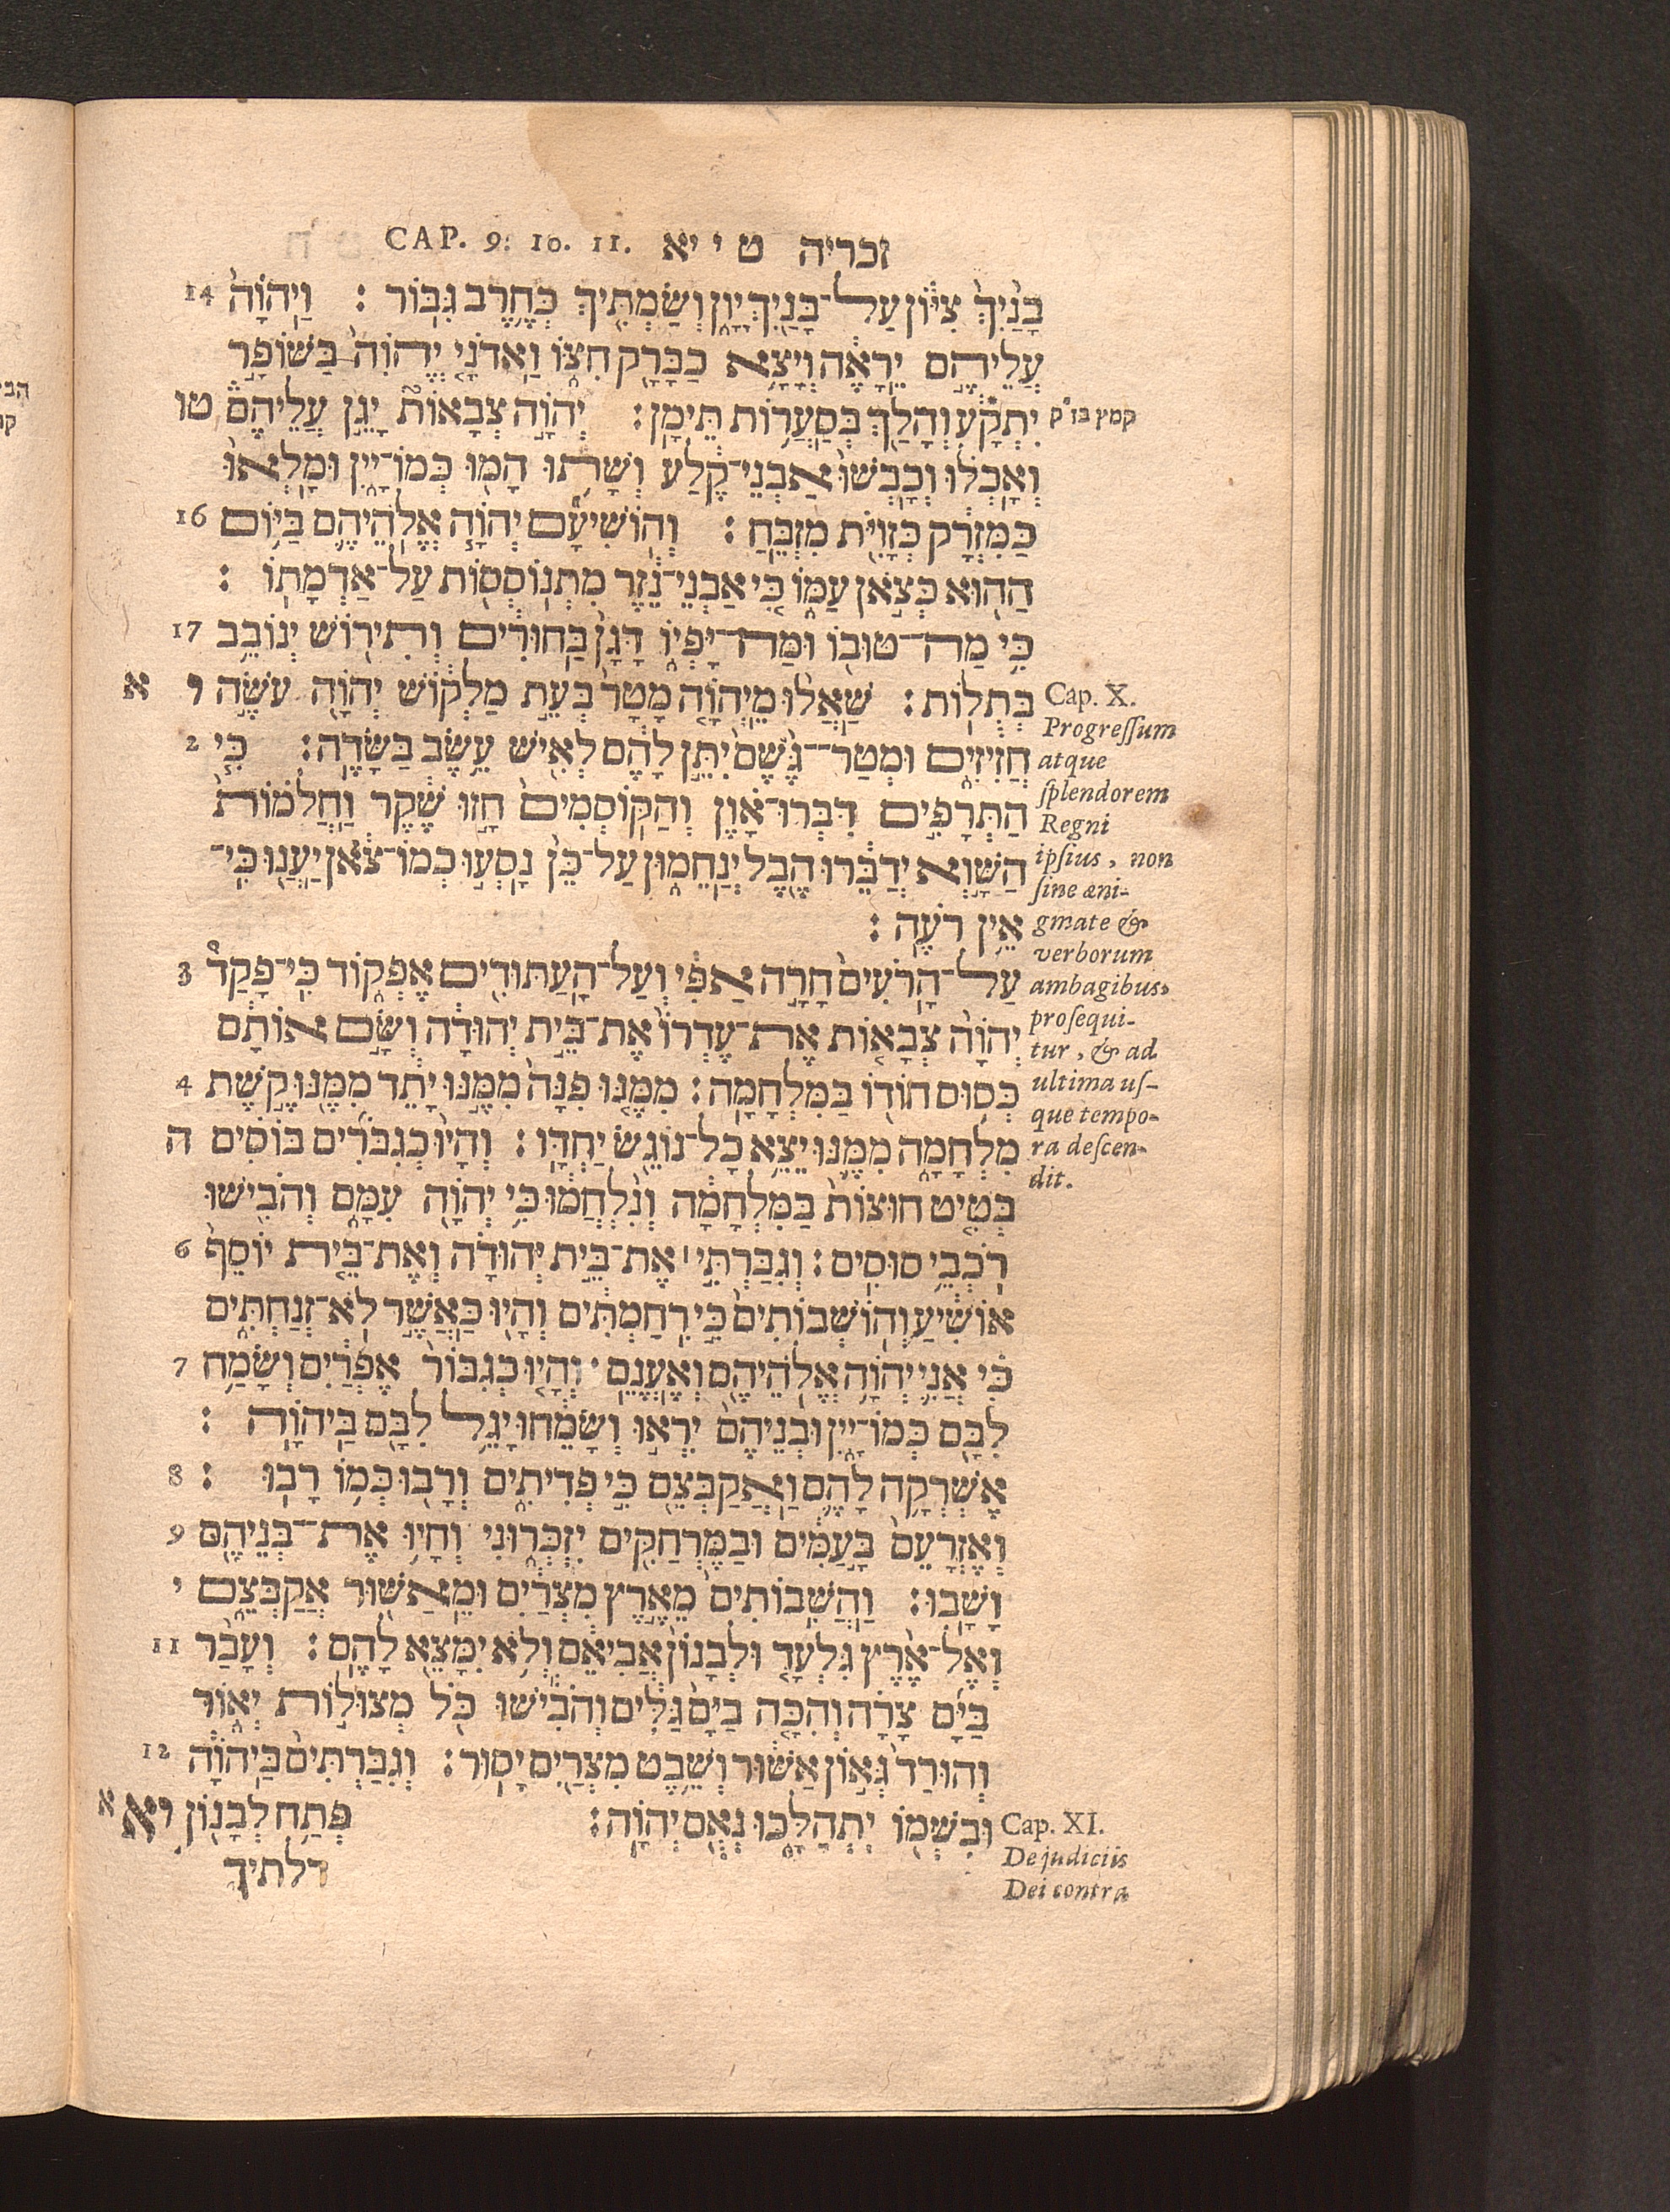 זכריה ט י יא CAP. 9: 10. 11.
בָּנַ֙יִךְ֙ צִיּ֔וֹן עַל־בָּנַ֖יִךְ יָוָ֑ן וְשַׂמְתִּ֖יךְ כְּחֶ֥רֶב גִּבּֽוֹר׃ וַֽיהוָֹה֙ 14
עֲלֵיהֶ֣ם יֵֽרָאֶ֔ה וְיָצָ֥א כַבָּרָ֖ק חִצּ֑וֹ וַֽאדֹנָ֤י יֱהוִֹה֙ בַּשּׁוֹפָ֣ר
יִתְקָ֔ע וְהָלַ֖ךְ בְּסַֽעֲר֥וֹת תֵּימָֽן׃ יְהוָֹ֣ה צְבָאוֹת֮ יָגֵ֣ן עֲלֵיהֶם֒ טו
קמץ בז״ק
וְאָֽכְל֗וּ וְכָֽבְשׁוּ֙ אַבְנֵי־קֶ֔לַע וְשָׁת֥וּ הָמ֖וּ כְּמוֹ־יָ֑יִן וּמָֽלְאוּ֙
כַּמִּזְרָ֔ק כְּזָוִיֹּ֖ת מִזְבֵּֽחַ׃ וְֽהוֹשִׁיעָ֞ם יְהוָֹ֧ה אֱלֹֽהֵיהֶ֛ם בַּיּ֥וֹם 16
הַה֖וּא כְּצֹ֣אן עַמּ֑וֹ כִּ֚י אַבְנֵי־נֵ֔זֶר מִֽתְנֽוֹסְס֖וֹת עַל־אַדְמָתֽוֹ׃
כִּ֥י מַה־טּוּב֖וֹ וּמַה־יָּפְי֑וֹ דָּגָן֙ בַּֽחוּרִ֔ים וְתִיר֖וֹשׁ יְנוֹבֵ֥ב 17
בְּתֻלֽוֹת׃ שַֽׁאֲל֨וּ מֵֽיְהוָֹ֤ה מָטָר֙ בְּעֵ֣ת מַלְק֔וֹשׁ יְהוָֹ֖ה עֹשֶׂ֣ה י א
חֲזִיזִ֑ים וּמְטַר־גֶּ֙שֶׁם֙ יִתֵּ֣ן לָהֶ֔ם לְאִ֖ישׁ עֵ֥שֶׂב בַּשָּׂדֶֽה׃ כִּ֧י 2
הַתְּרָפִ֣ים דִּבְּרוּ־אָ֗וֶן וְהַקּֽוֹסְמִים֙ חָ֣זוּ שֶׁ֔קֶר וַֽחֲלֹמוֹת֙
הַשָּׁ֣וְא יְדַבֵּ֔רוּ הֶ֖בֶל יְנַֽחֵמ֑וּן עַל־כֵּן֙ נָֽסְע֣וּ כְמוֹ־צֹ֔אן יַֽעֲנ֖וּ כִּֽי־
אֵ֥ין רֹעֶֽה׃
עַל־הָֽרֹעִים֙ חָרָ֣ה אַפִּ֔י וְעַל־הָֽעַתּוּדִ֖ים אֶפְק֑וֹד כִּֽי־פָקַד֩ 3
יְהוָֹ֨ה צְבָא֤וֹת אֶת־עֶדְרוֹ֙ אֶת־בֵּ֣ית יְהוּדָ֔ה וְשָׂ֣ם אוֹתָ֔ם
כְּס֥וּס הוֹד֖וֹ בַּמִּלְחָמָֽה׃ מִמֶּ֤נּוּ פִנָּה֙ מִמֶּ֣נּוּ יָתֵ֔ד מִמֶּ֖נּוּ קֶ֣שֶׁת 4
מִלְחָמָ֑ה מִמֶּ֛נּוּ יֵצֵ֥א כָל־נוֹגֵ֖שׂ יַחְדָּֽו׃ וְהָי֨וּ כְגִבֹּרִ֜ים בּוֹסִ֨ים ה
בְּטִ֤יט חוּצוֹת֙ בַּמִּלְחָמָ֔ה וְנִ֨לְחֲמ֔וּ כִּ֥י יְהוָֹ֖ה עִמָּ֑ם וְהֹבִ֖ישׁוּ
רֹֽכְבֵ֥י סוּסִֽים׃ וְגִבַּרְתִּ֣י ׀ אֶת־בֵּ֣ית יְהוּדָ֗ה וְאֶת־בֵּ֤ית יוֹסֵף֙ 6
אוֹשִׁ֔יעַ וְהֽוֹשְׁבוֹתִים֙ כִּ֣י רִֽחַמְתִּ֔ים וְהָי֖וּ כַּֽאֲשֶׁ֣ר לֹֽא־זְנַחְתִּ֑ים
כִּ֗י אֲנִ֛י יְהוָֹ֥ה אֱלֹהֵיהֶ֖ם וְאֶֽעֱנֵֽם׃ וְהָי֤וּ כְגִבּוֹר֙ אֶפְרַ֔יִם וְשָׂמַ֥ח 7
לִבָּ֖ם כְּמוֹ־יָ֑יִן וּבְנֵיהֶם֙ יִרְא֣וּ וְשָׂמֵ֔חוּ יָגֵ֥ל לִבָּ֖ם בַּֽיהוָֹֽה׃
אֶשְׁרְקָ֥ה לָהֶ֛ם וַֽאֲקַבְּצֵ֖ם כִּ֣י פְדִיתִ֑ים וְרָב֖וּ כְּמ֥וֹ רָבֽוּ׃ 8
וְאֶזְרָעֵם֙ בָּֽעַמִּ֔ים וּבַמֶּרְחַקִּ֖ים יִזְכְּר֑וּנִי וְחָי֥וּ אֶת־בְּנֵיהֶ֖ם 9
וָשָֽׁבוּ׃ וַֽהֲשִֽׁבוֹתִים֙ מֵאֶ֣רֶץ מִצְרַ֔יִם וּמֵֽאַשּׁ֖וּר אֲקַבְּצֵ֑ם י
וְאֶל־אֶ֨רֶץ גִּלְעָ֤ד וּלְבָנוֹן֙ אֲבִיאֵ֔ם וְלֹ֥א יִמָּצֵ֖א לָהֶֽם׃ וְעָבַ֨ר 11
בַּיָּ֜ם צָרָ֗ה וְהִכָּ֤ה בַיָּם֙ גַּלִּ֔ים וְהֹבִ֕ישׁוּ כֹּ֖ל מְצוּל֣וֹת יְאֹ֑ור
וְהוּרַד֙ גְּא֣וֹן אַשּׁ֔וּר וְשֵׁ֥בֶט מִצְרַ֖יִם יָסֽוּר׃ וְגִבַּרְתִּים֙ בַּֽיהוָֹ֔ה 12
וּבִשְׁמ֖וֹ יִתְהַלָּ֑כוּ נְאֻ֖ם יְהוָֹֽה׃ פְּתַ֥ח לְבָנ֖וֹן יא א
דלתיך
Cap. X.
Progreſſum
atque
ſplendorem
Regni
ipſius, non
ſine æni-
gmate &
verborum
ambagibus,
proſequi-
tur, & ad
ultima uſ-
que tempo-
ra deſcen-
dit.
Cap. XI.
De judiciis
Dei contra